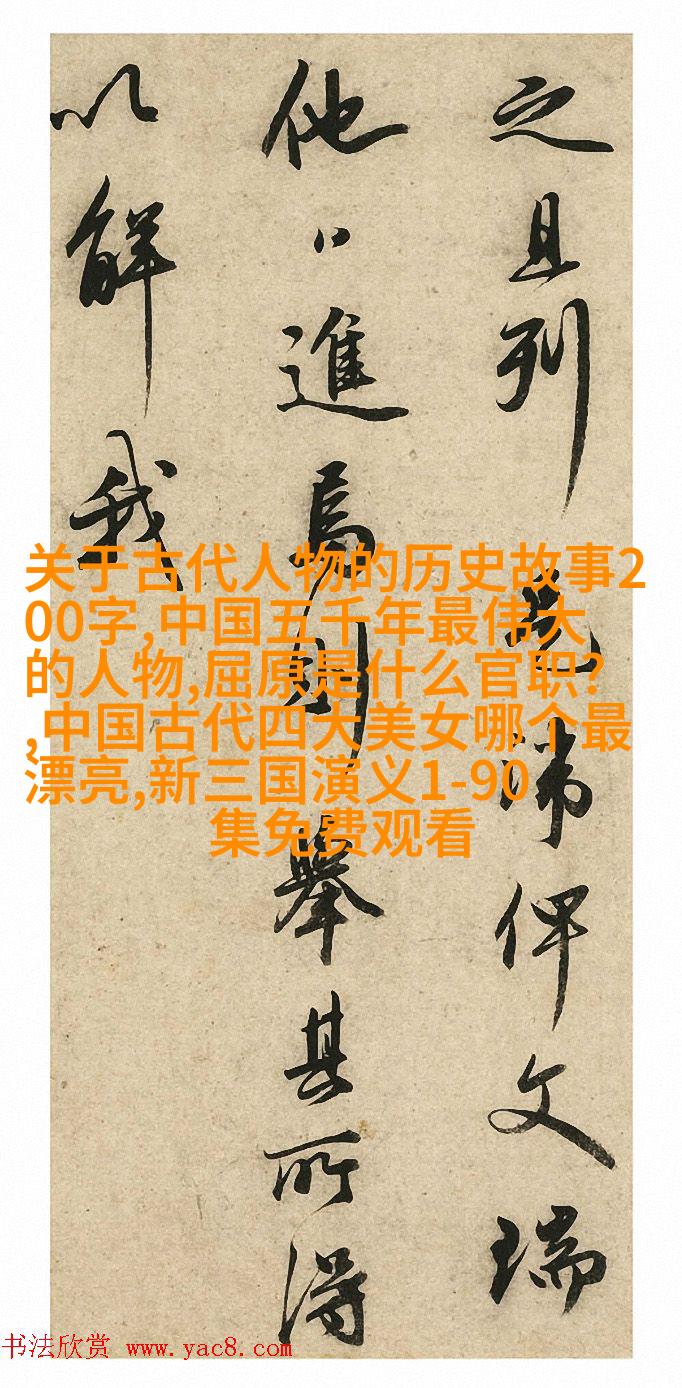 之且列
諱俾文瑞
他〻進焉則舉其所得
以解我
关于古代人物的历史故事2
00字,中国五千年最伟大
的人物,屈原是什么官职?
,中国古代四大美女哪个最
漂亮,新三国演义1-90
集免费观看
书法欣赏 www.yac8.com